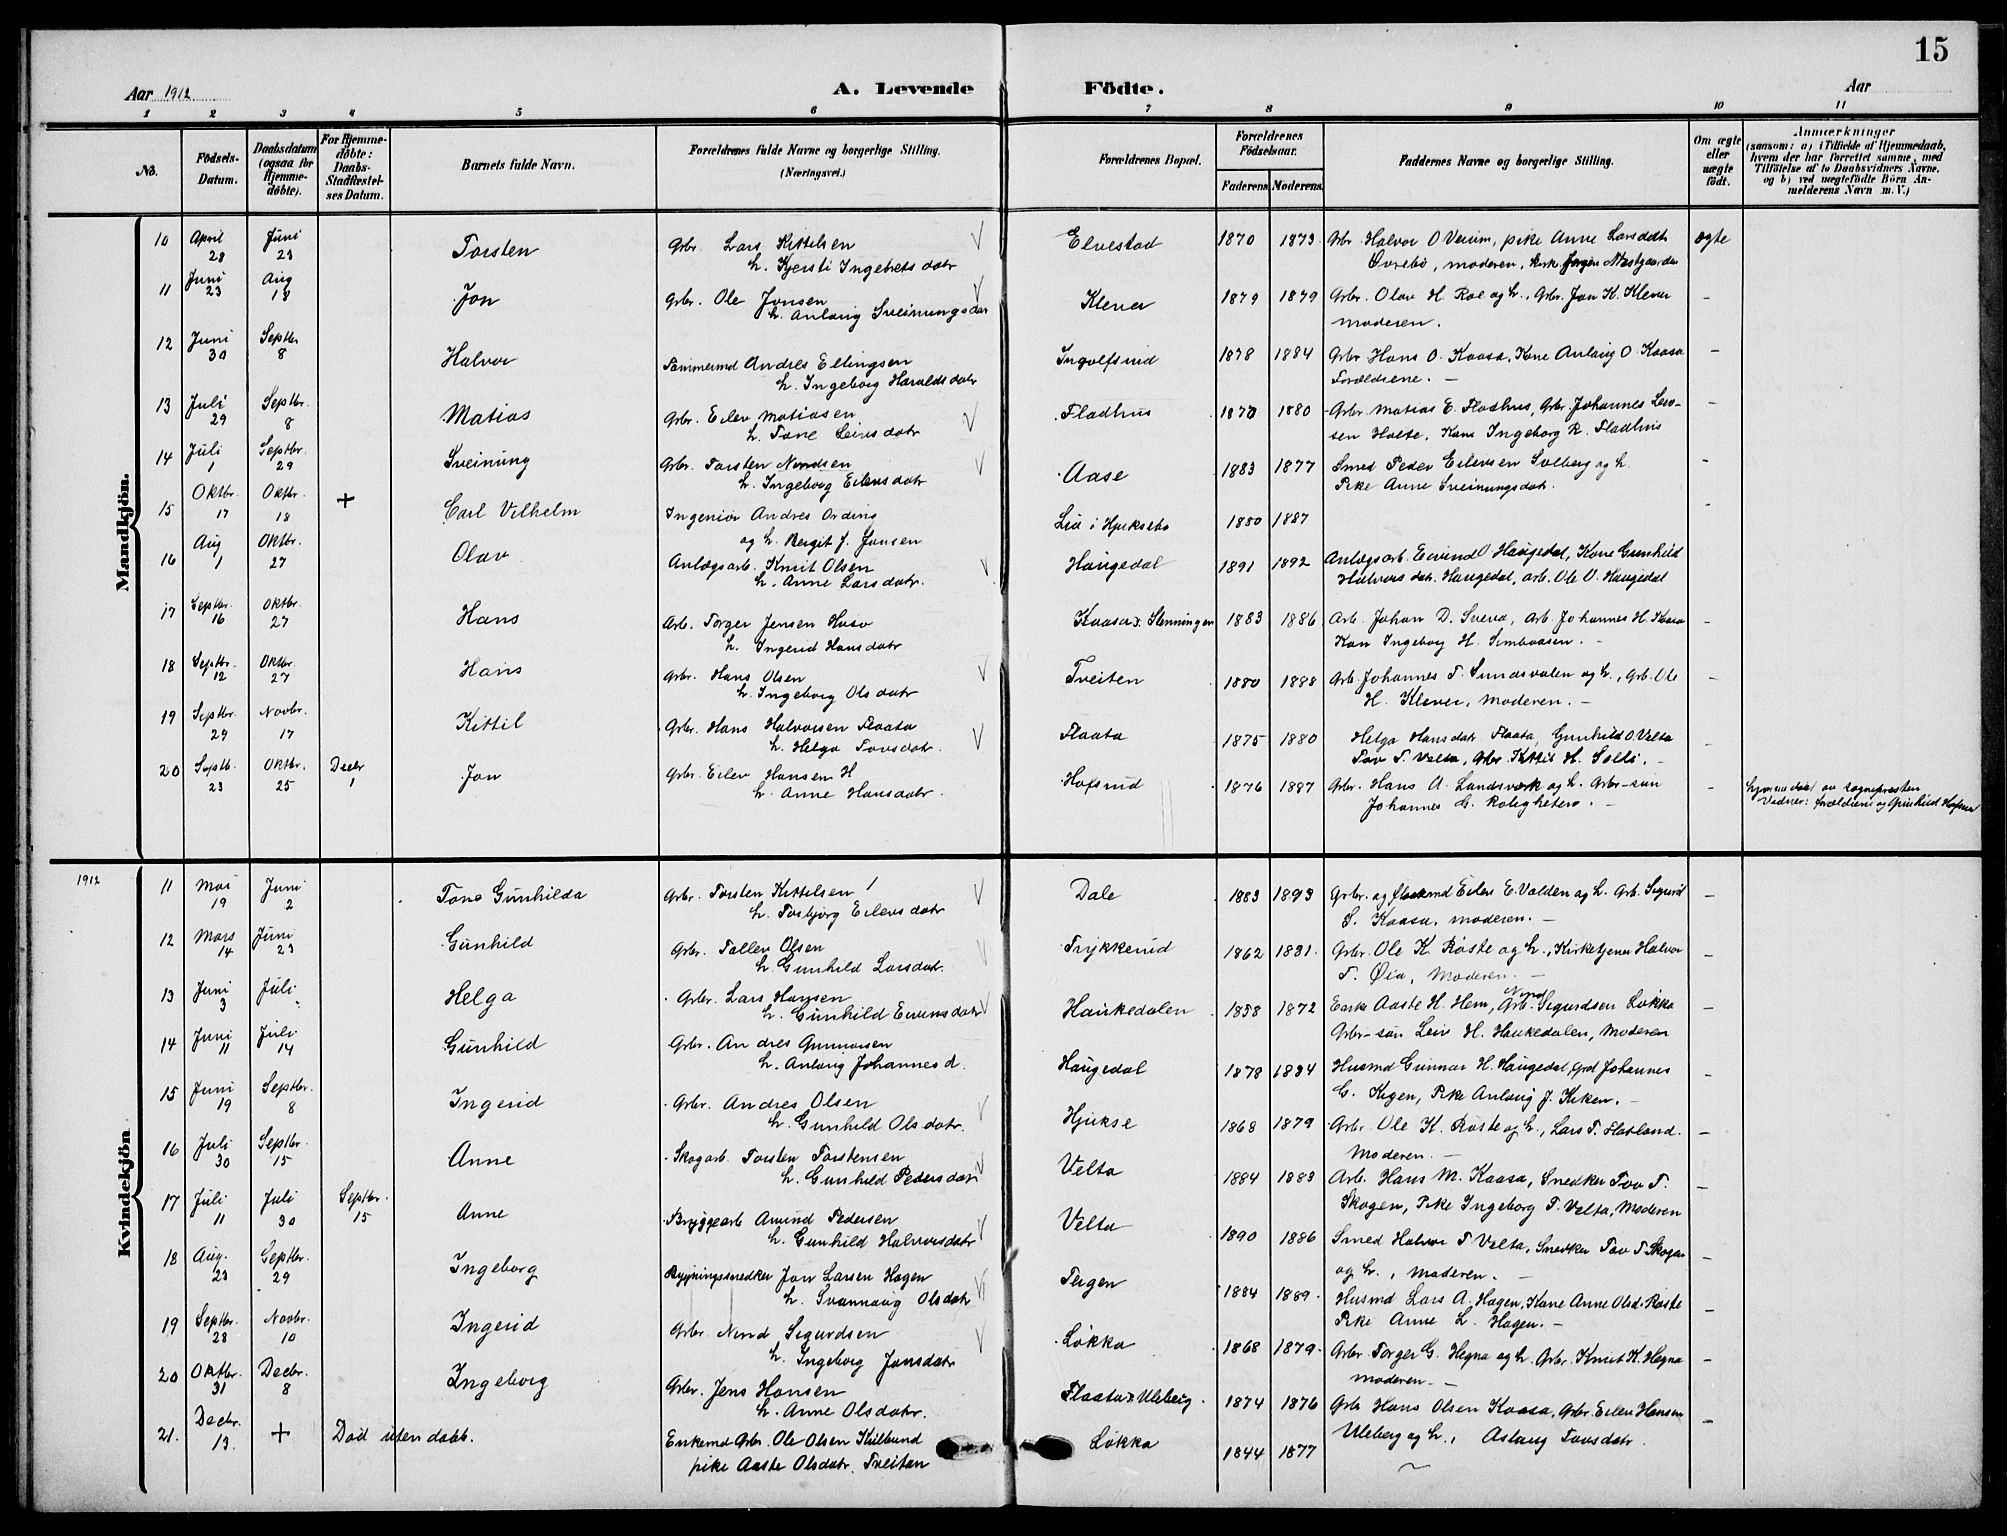 15
Aar 1912
A. Levende Födte.
Aar
1 2 3 4 5 6 7 8 9 10 11
No.
Födsels-Datum.
Daabsdatum (ogsaa for Hjemme-döbte).
For Hjemme-döbte: Daabs-Stadfæstel-ses Datum.
Barnets fulde Navn.
Forældrenes fulde Navne og borgerlige Stilling. (Næringsvei.)
Forældrenes Bopæl.
Forældrenes Födselsaar.
Faderens. Moderens.
Faddernes Navne og borgerlige Stilling.
Om ægte eller uægte födt.
Anmærkninger
(saasom: a) i Tilfælde af Hjemmedaab,
hvem der har forrettet samme, med
Tilföielse af to Daabsvidners Navne.
og b) ved uægtefödte Börn An-
melderens Navn m. V.)
Mandkjön.
10 April 28 Juni 23 Torsten Arbr. Lars Kittelsen Elvestad 1870 1873 Arbr. Halvor O Verim, pike Anne Larsdatr ægte
h. Kjersti Ingebretsdatr Øvrebø, moderen,
11 Juni 23 Aug 18 Jon Arbr. Ole Jonsen Klever 1879 1879 Arbr. Olav H. Roe og h., Arbr. Jon K. Klever –
h. Anlaug Sveinungsdar moderen.
12 Juni 30 Septbr 8 Halvor Tømmermd Andres Ellingsen Ingolfsrud 1878 1884 Arbr Hans O. Kaasa, Kone Anlaug O. Kaasa –
h. Ingeborg Haraldsdatr Forældrene. –
13 Juli 29 Septbr. 8 Matias Arbr. Eilev Matiasen Fladhus 1870 1880 Arbr. Matias E. Fladhus, Arbr. Johannes Lar- –
h. Tone Leivsdatr sen Holte, Kone Ingeborg R. Fladhus
14 Juli 1 Septbr. 29 Sveinung Arbr. Torsten Niridsen Aase 1883 1877 Smed Peder Eilevsen Solberg og h. –
h. Ingeborg Eilevsdatr Pike Anne Sveinungsdatr.
15 Oktbr. 17 Oktbr. 18 + Carl Vilhelm Ingeniør Andres Ording Lia i Hjuksebø 1880 1887 –
og h. Bergit J. Jonsen
16 Aug 1 Oktbr. 27 Olav Anlægsarb. Knut Olsen Haugedal 1891 1892 Anlægsarb. Eivind O Haugedal, Kone Gunhild
h. Anne Larsdatr. Halvorsdatr. Haugedal, arb. Ole O. Haugedal
17 Septbr. 16 Oktbr. 27 Hans Arb. Torger Jensen Huso Kaasa x Slenningen 1883 1886 Arb. Johan D. Sverva, Arb. Johannes H. Kaasa –
h. Ingerid Hansdatr Kon Ingeborg H. Semboasen. –
18 Septbr. 12 Oktbr. 27 Hans Arbr. Hans Olsen Tveiten 1880 1888 Arb. Johannes T. Sundsvalen og h., Arb. Ole –
h. Ingeborg Olsdatr H. Klever, Moderen. –
19 Septbr. 29 Novbr. 17 Kittil Arbr. Hans Halvorsen Flaata Flaata 1875 1880 Helga Hansdatr. Flaata, Gunhild O. Velta –
h. Helga Tovsdatr. Tov T. Velta, Arbr. Kittil H. Solli. –
20 Septb. 23 Oktbr. 25 Decbr 1 Jon Arbr. Eilev Hansen H Hofsrud 1876 1887 Arbr. Hans A. Landsværk og h. Arbr-søn –
h. Anne Hansdatr. Johannes G. Roligheten. –
av sognepresten
Vidner: forældrene og Gunhild
Kvindekjön
1912 11 Mai 19 Juni 2 Tone Gunhilda Arbr. Torsten Kittelsen Dale 1883 1893 Arbr. og Eilev E. Valden og h. Arb. Sigurd –
h. Torbjørg Eilevsdatr S. Kaasa, moderen. –
12 Mars 14 Juni 23 Gunhild Arbr. Tallev Olsen Trykkerud 1862 1881. Arbr. Ole K. Røste og h., Kirketjener Halvor –
h. Gunhild Larsdatr. T. Øia, Moderen. –
13 Juni 3 Juli Helga Arbr. Lars Hansen Haukedalen 1858 1872 Enke Aaste H. Hem, Arb. Nirid Sigurdsen Løkka –
h. Gunhild Evensdatr Arbr-søn Leiv H. Haukedalen, Moderen
14 Juni 11 Juli 14 Gunhild Arbr. Andres Gunnarsen Haugedal 1878 1884 Husmd Gunnar H. Haugedal, Grd Johannes –
h. Anlaug Johannesd. G. Kigen, Pike Anlaug J. Kiken. –
15 Juni 19 Septbr. 8 Ingerid Arbr. Andres Olsen Hjukse 1868 1879 Arbr. Ole K. Røste og h., Lars T. Flatland. –
h. Gunhild Olsdatr. Moderen. –
16 Juli 30 Septbr. 15 Anne Skogarb. Torsten Torstensen Velta 1884 1883 Arb. Hans M. Kaasa, Snedker Tov T. –
h. Gunhild Pedersdatr Skogen, Pike Ingeborg T. Velta, Moderen
17 Juli 11 Juli 30 Septbr. 15 Anne Bryggearb Amund Pedersen Velta 1890 1886 Smed Halvor T. Velta, Snedker Tov T. Skogen –
h. Gunhild Halvorsdatr og h., Moderen. –
18 Aug. 23 Septbr. 29 Ingeborg Bygningssnedker Jon Larsen Hagen Tergen 1884 1889. Husmd Lars A. Hagen, Kone Anne Olsd. Røste –
h. Svannaug Olsdatr Pike Anne L. Hagen. –
19 Septbr. 28 Novbr. 10 Ingerid Arbr. Nirid Sigurdsen Løkka 1868 1879. Arbr. Torger G. Hegna og h. Arbr. Knut K. Hegna –
h. Ingeborg Jonsdatr Moderen. –
20 Oktbr. 31 Decbr. 8 Ingeborg Arbr. Jens Hansen Flaata x Uleberg 1874 1876 Arbr Hans Olsen Kaasa, Arbr. Eilev Hansen –
h. Anne Olsdatr. Uleberg og h., Aslaug Tovsdatr.
21. Decbr. 13. + Død uten dåb. Enkemd Arbr. Ole Olsen Løkka 1844 1877
pike Aaste Olsdatr. Tveitan